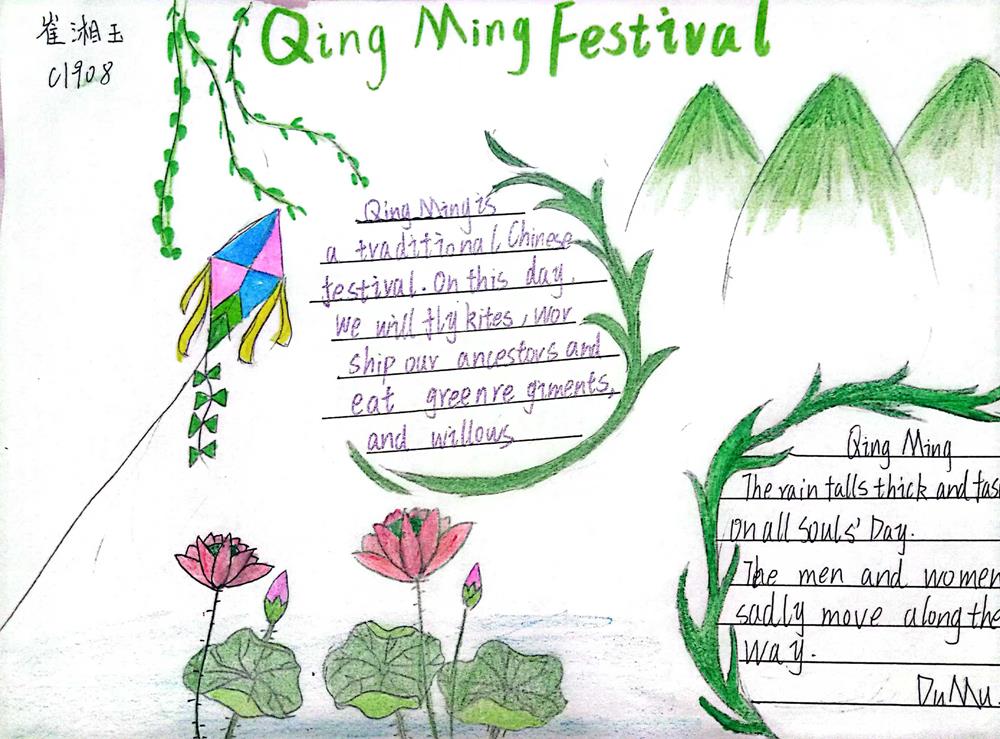 崔湘玉
C1908
Qing Ming Festival
Qing Ming is
a traditional Chinese
festival. On this day,
we will fly kites, wor
ship our ancestors and
eat greenre giments,
and willows
Qing Ming
The rain falls thick and fas
on all souls' Day.
The men and women
sadly move along the
way.
Du Mu.